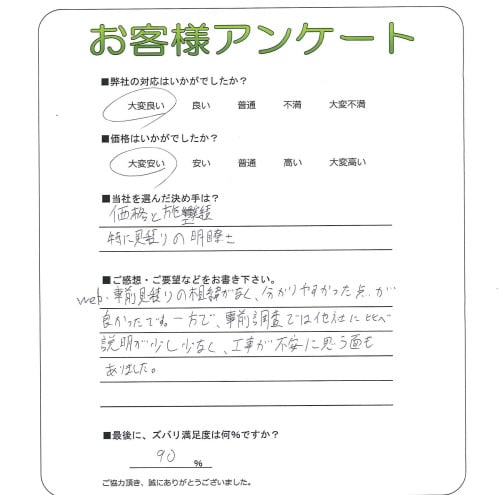 お客様アンケート
■弊社の対応はいかがでしたか？
大変良い 良い 普通 不満 大変不満
■価格はいかがでしたか？
大変安い 安い 普通 高い 大変高い
■当社を選んだ決め手は？
価格と施工実績
特に見積りの明瞭さ
■ご感想・ご要望などをお書き下さい。
web・事前見積りの相違がなく、分かりやすかった点が
良かったです。一方で、事前調査では他社に比べ
説明が少し少なく、工事が不安に思う面も
ありました。
■最後に、ズバリ満足度は何％ですか？
90 ％
ご協力頂き、誠にありがとうございました。